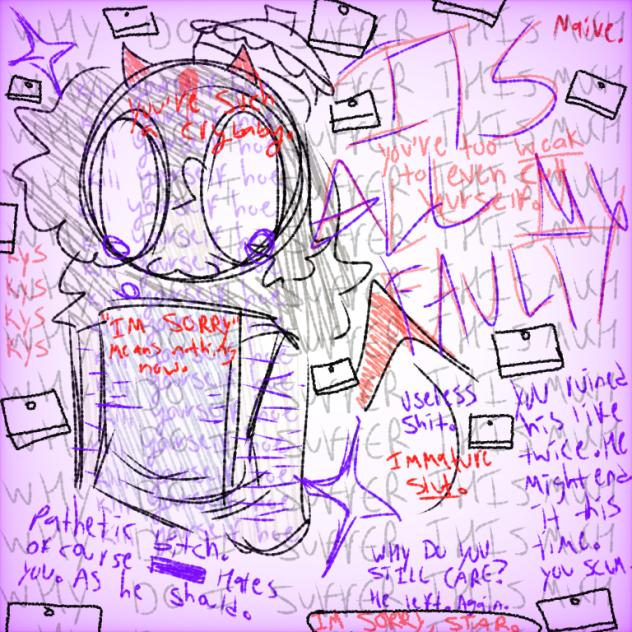 WHY DO I SUFFER THIS MUCH
Naive.
ITS
ALL MY
FAULT
You're such
a crybaby.
you're too weak
to even cut
yourself.
kill yourself hoe
kys
kys
kys
kys
"IM SORRY"
means nothing
now.
useless
shit.
Immature
slut.
You ruined
his life
twice. He
might end
it this
time.
you scum.
Pathetic bitch.
of course hates
you. As he should.
WHY DO YOU
STILL CARE?
He left. Again.
IM SORRY, STAR.